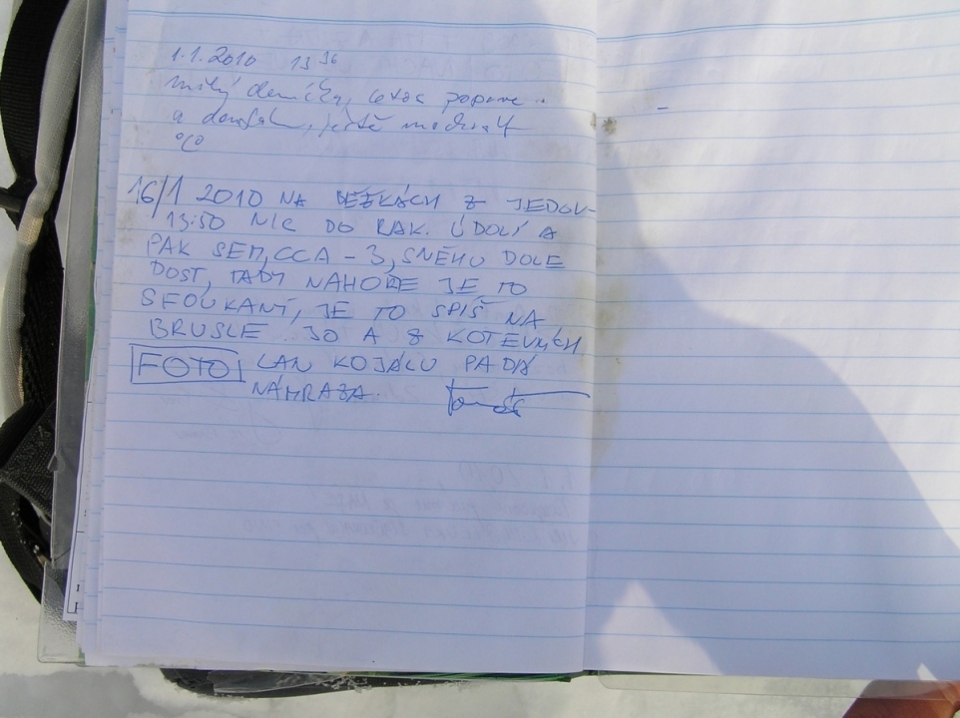 1.1.2010 13 36
milý deníčku,
a doufám, ještě
16/1 2010 NA BĚŽKÁCH Z JEDOV-
13:50 NIC DO RAK. ÚDOLÍ A
PAK SEM, CCA -3, SNĚHU DOLE
DOST, TADY NAHOŘE JE TO
SFOUKANÝ, JE TO SPÍŠ NA
BRUSLE. JO A Z KOTEVNÍCH
FOTO LAN KOJÁLU PADÁ
NÁMRAZA. Tomáš